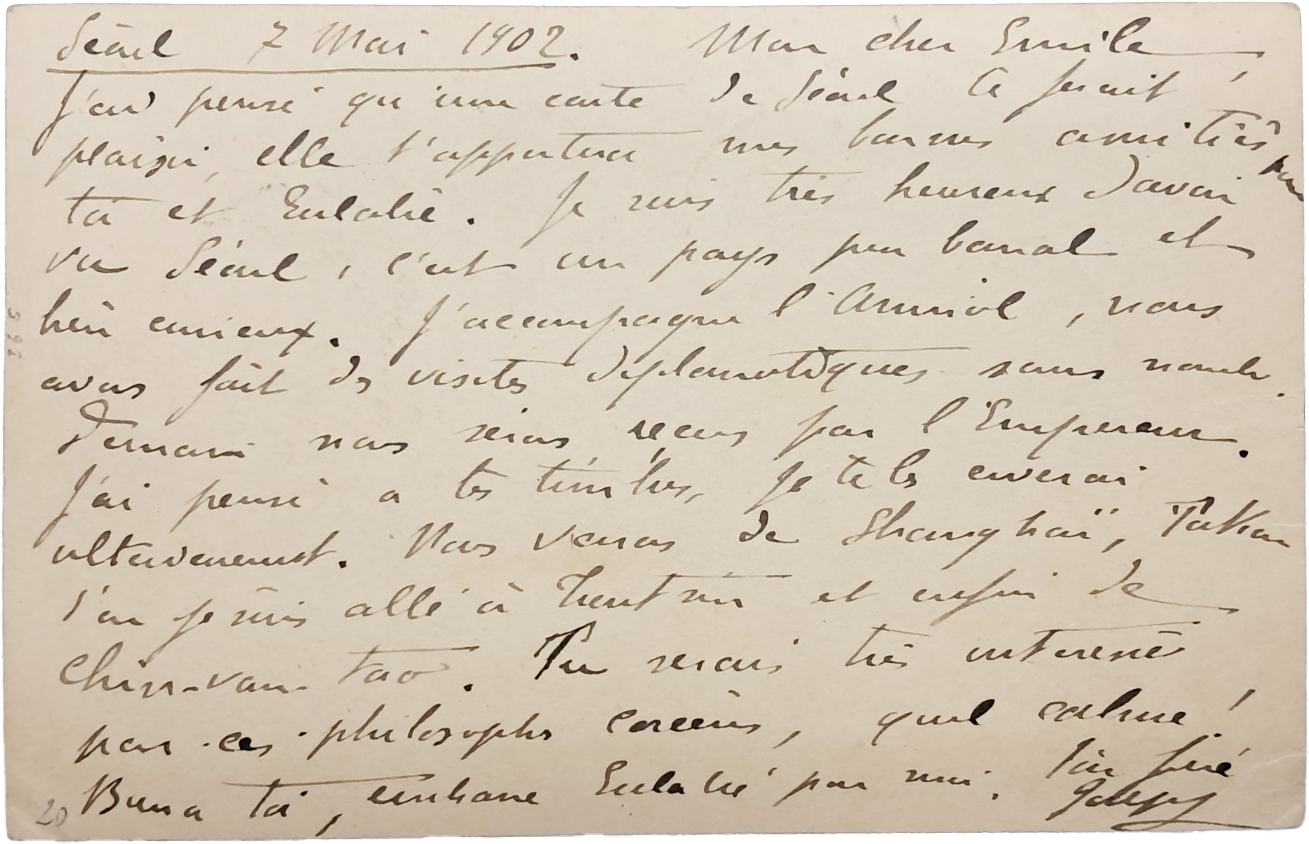 Séoul 7 Mai 1902. Mon cher Emile,
J'ai pensé qu'une carte de Séoul te ferait
plaisir, elle t'apportera mes bonnes amitiés pour
toi et Eulalie. Je suis très heureux d'avoir
vu Séoul, c'est un pays peu banal et
bien curieux. J'accompagne l'Amiral, nous
avons fait des visites diplomatiques sans nombre.
Demain nous serons reçus par l'Empereur.
J'ai pensé à tes timbres, je te les enverrai
ultérieurement. Nous venons de Shanghaï, Takou
d'où je suis allé à Tientsin et enfin de
Chin-van-tao. Tu serais très intéressé
par ces philosophes coréens, quel calme !
Bien à toi, embrasse Eulalie pour moi. Ton
20